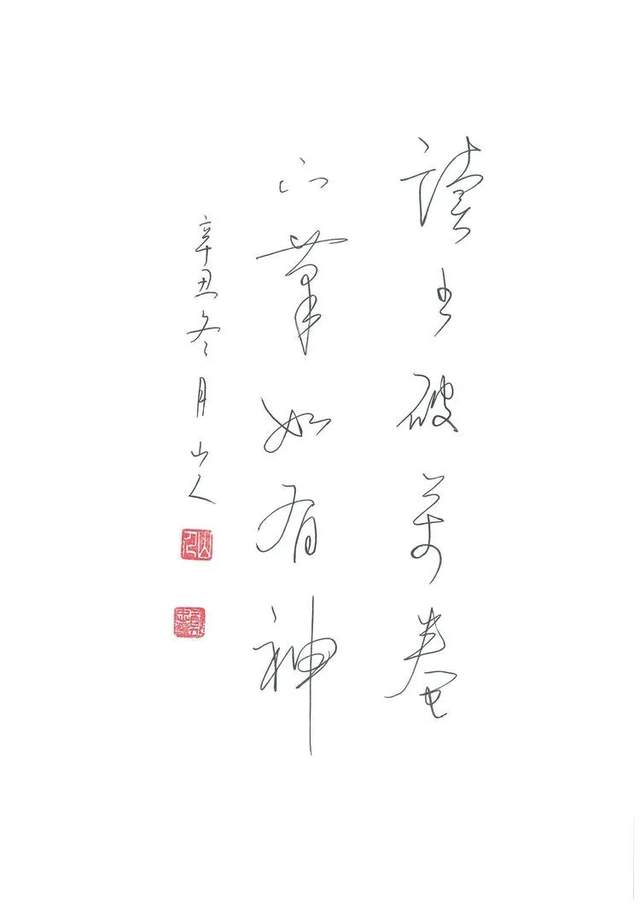 讀書破萬卷
下筆如有神
辛丑冬月山人